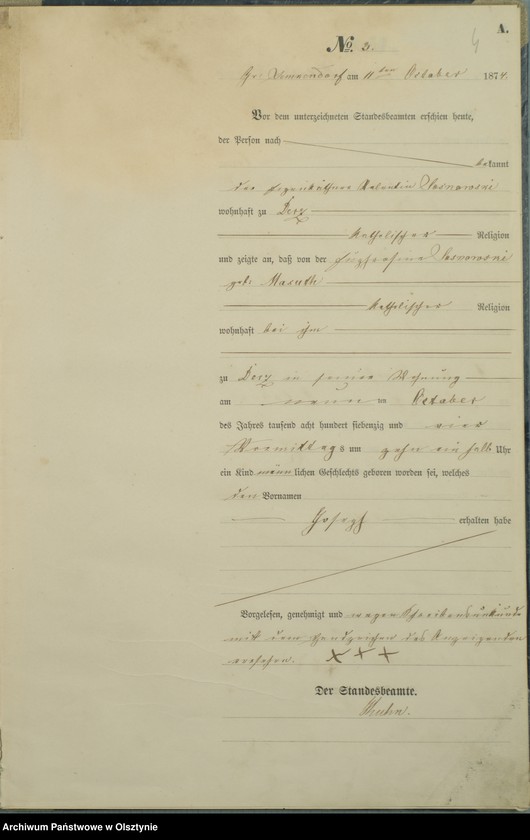 A.
4
No. 3.
am 11ten October 1874.
Vor dem unterzeichneten Standesbeamten erschien heute,
der Person nach
bekannt
der Valentin
wohnhaft zu Derz
katholischer Religion
und zeigte an, daß von der
geb. Masuth
katholischer Religion
wohnhaft bei ihm
zu Derz in seiner Wohnung
am neunten October
des Jahres tausend acht hundert siebenzig und vier
Vormittags um zehn ein halb Uhr
ein Kind männlichen Geschlechts geboren worden sei, welches
den Vornamen
Joseph erhalten habe
Vorgelesen, genehmigt und wegen Schreibensunkunde
mit dem Handzeichen des Anzeigenden
versehen. +++
Der Standesbeamte.
Archiwum Państwowe w Olsztynie